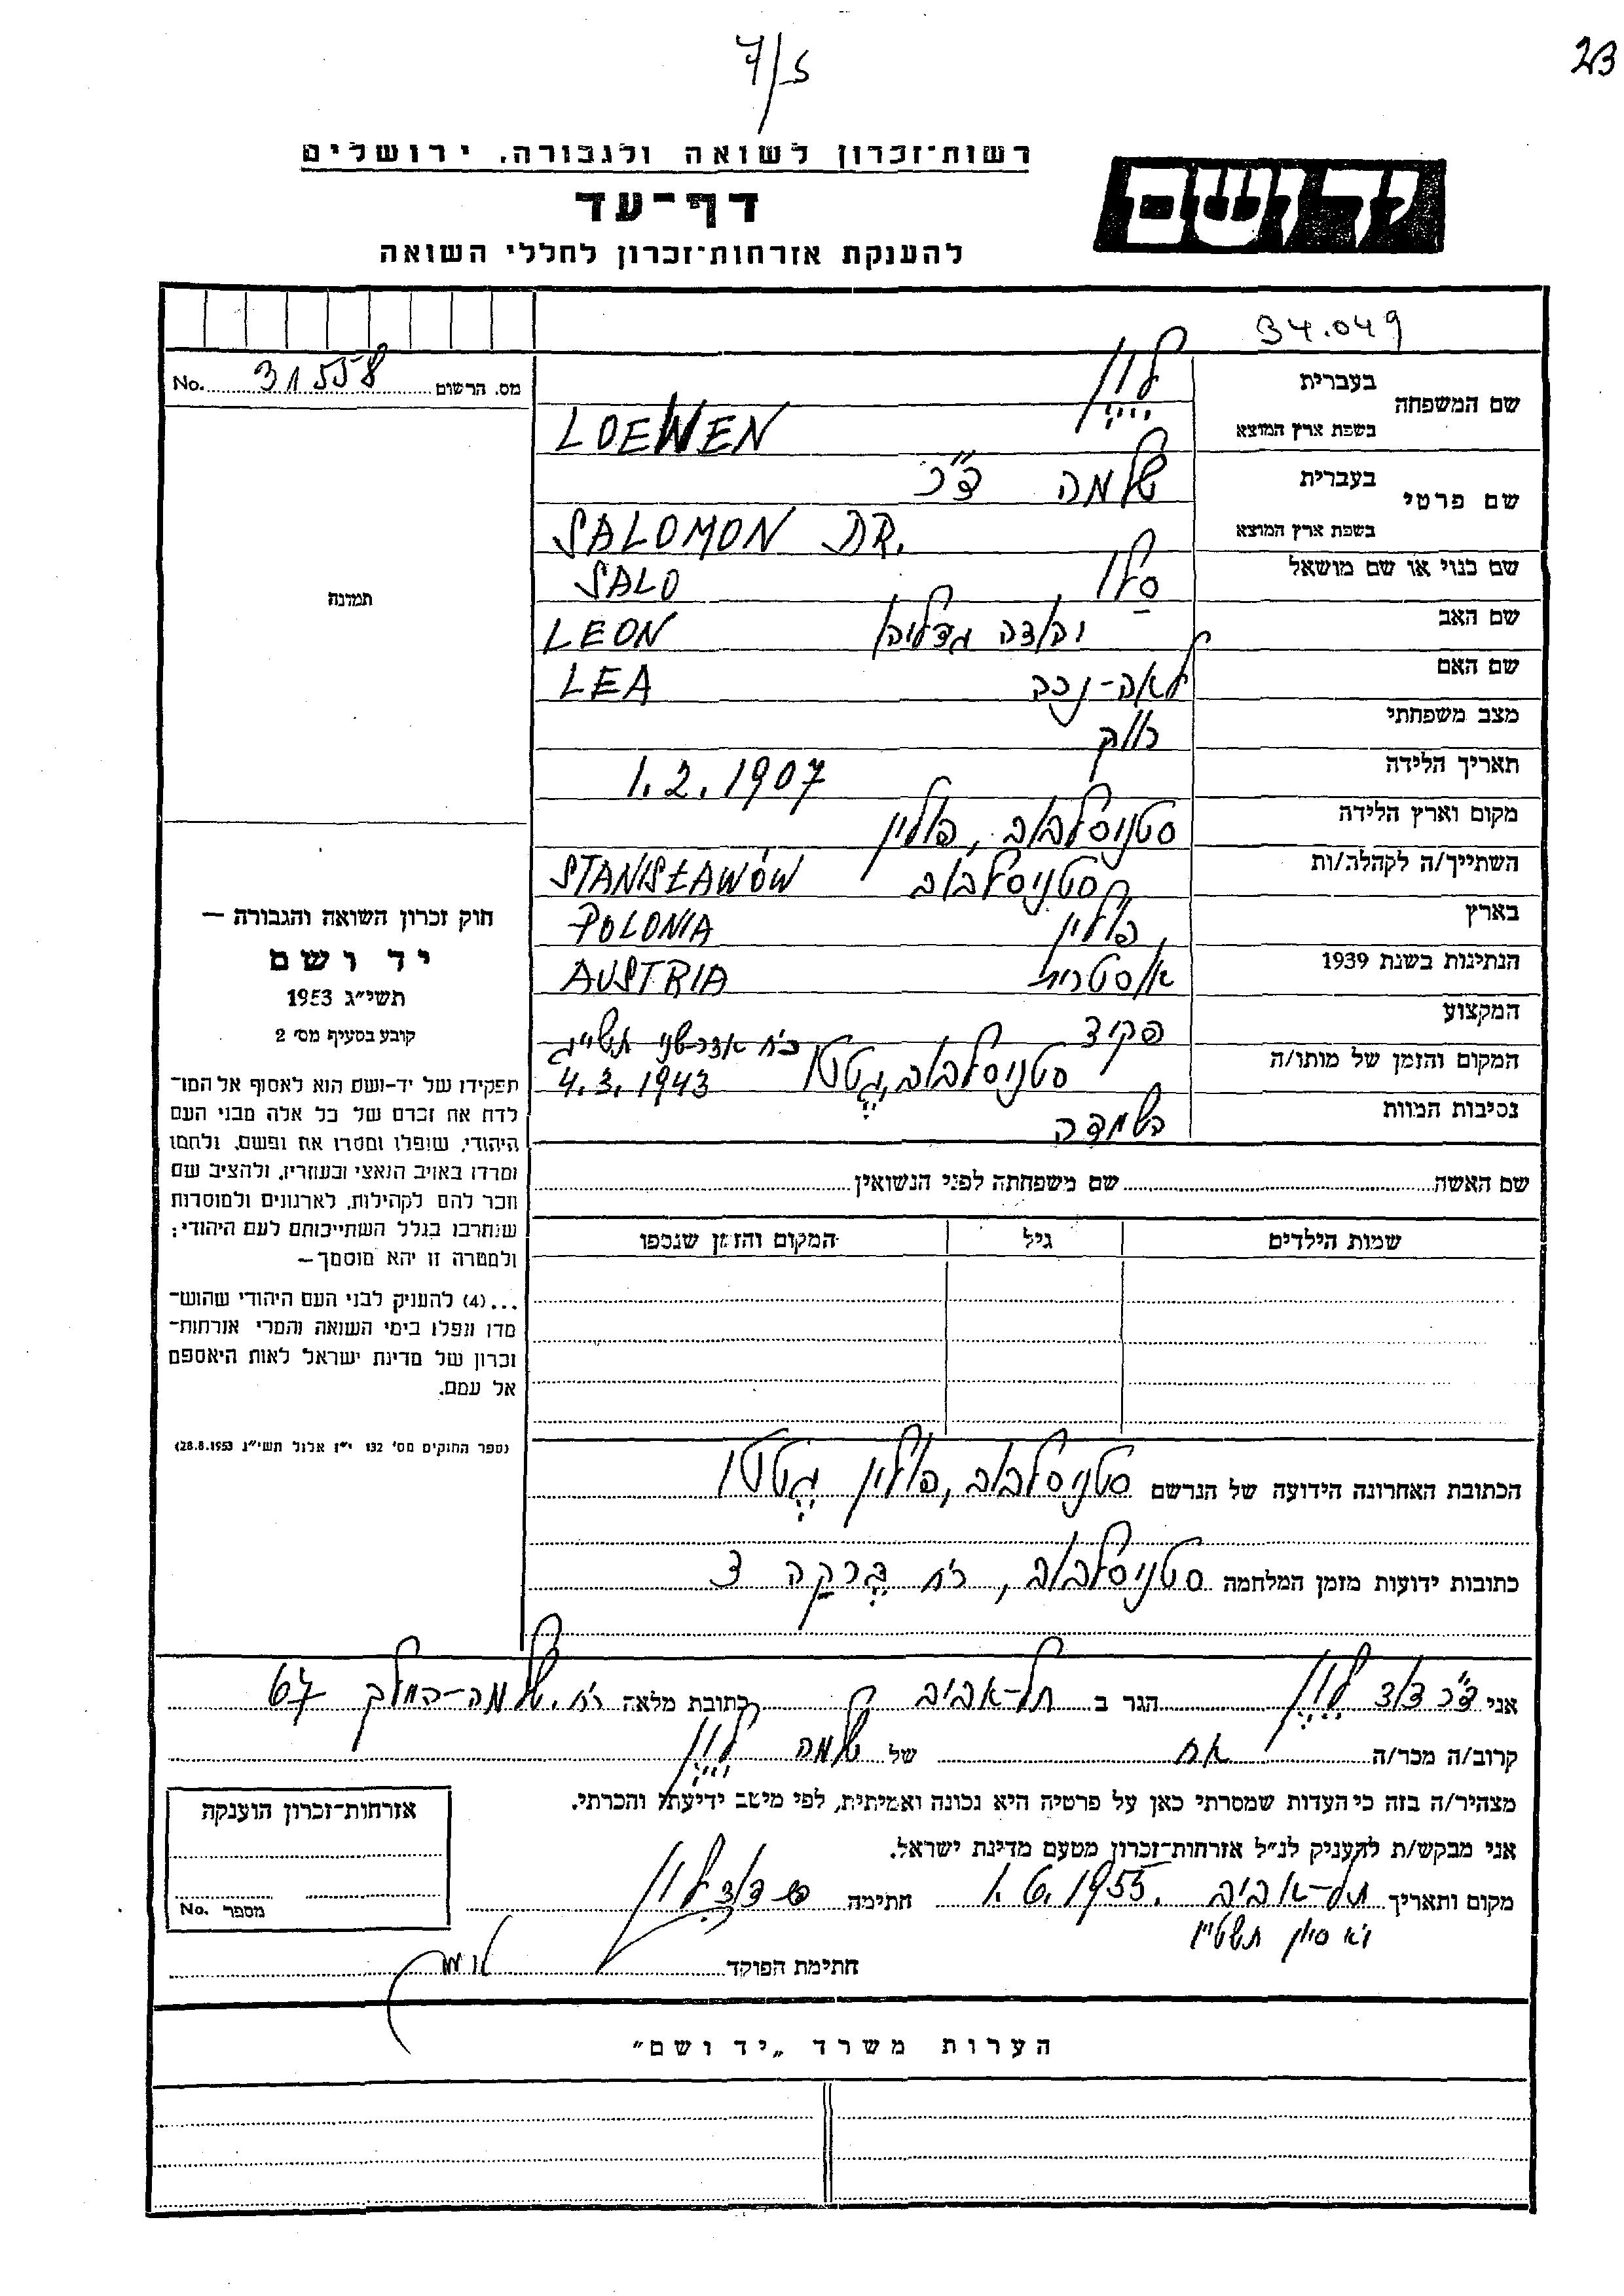 7/5
23
רשות־זכרון לשואה ולגבורה, ירושלים
יד ושם
דף־עד
להענקת אזרחות־זכרון לחללי השואה
34.049
No. 31558 מס. הרשום
שם המשפחה
בעברית לוין
בשפת ארץ המוצא LOEWEN
שם פרטי
בעברית שלמה ד"ר
בשפת ארץ המוצא SALOMON DR.
שם כנוי או שם מושאל סלו SALO
שם האב יהודה גדליהו LEON
שם האם לאה־ LEA
מצב משפחתי רווק
תאריך הלידה 1.2.1907
מקום וארץ הלידה סטניסלבוב, פולין
השתייך/ה לקהלה/ות סטניסלבוב STANISŁAWÓW
בארץ פולין POLONIA
הנתינות בשנת 1939 אוסטרית AUSTRIA
המקצוע פקיד
המקום והזמן של מותו/ה סטניסלבוב, גטטו 4.3.1943
נסיבות המוות השמדה
תמונה
חוק זכרון השואה והגבורה —
יד ושם
תשי"ג 1953
קובע בסעיף מס' 2
תפקידו של יד-ושם הוא לאסוף אל המו־
לדת את זכרם של כל אלה מבני העם
היהודי, שנפלו ומסרו את נפשם, נלחמו
ומרדו באויב הנאצי ובעוזריו, ולהציב שם
וזכר להם לקהילות, לארגונים ולמוסדות
שנחרבו בגלל השתייכותם לעם היהודי;
ולמטרה זו יהא מוסמך —
...(4) להעניק לבני העם היהודי שהוש־
מדו ונפלו בימי השואה והמרי אזרחות־
זכרון של מדינת ישראל לאות היאספם
אל עמם.
(ספר החוקים מס' 132 י"ז אלול תשי"ג 28.8.1953)
שם האשה שם משפחתה לפני הנשואין
שמות הילדים גיל המקום והזמן שנספו
הכתובת האחרונה הידועה של הנרשם סטניסלבוב, פולין גטטו
כתובות ידועות מזמן המלחמה סטניסלבוב, רח' ברקה 3
אני ד"ר דוד לוין הגר ב תל-אביב כתובת מלאה רח. שלמה-המלך 67
קרוב/ה מכר/ה אח של שלמה לוין
מצהיר/ה בזה כי העדות שמסרתי כאן על פרטיה היא נכונה ואמיתית, לפי מיטב ידיעתי והכרתי.
אני מבקש/ת להעניק לנ"ל אזרחות־זכרון מטעם מדינת ישראל.
מקום ותאריך תל-אביב 1.6.1955 חתימה דוד לוין
י"א סיון תשט"ו
חתימת הפוקד
אזרחות־זכרון הוענקה
מספר No.
הערות משרד „יד ושם"